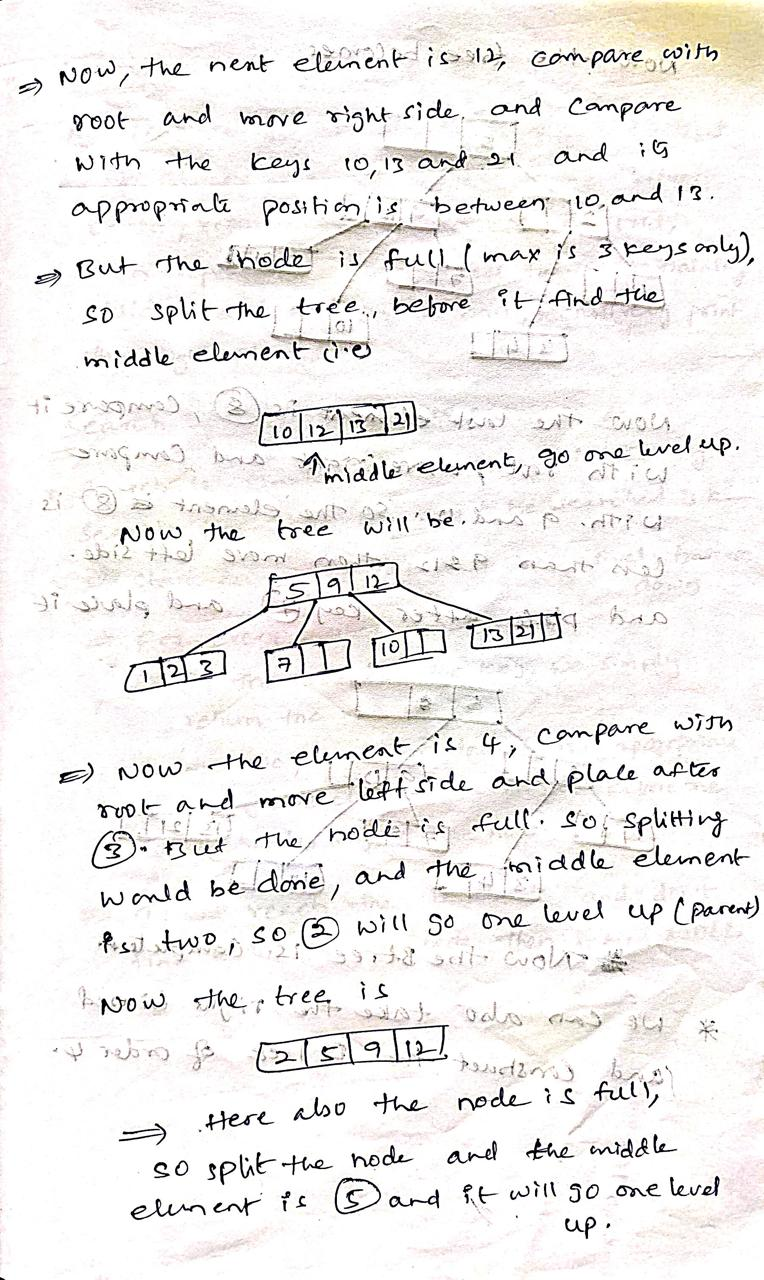 ⇒ Now, the next element is 12, compare with
root and move right side. and Compare
with the keys 10, 13 and 21 and its
appropriate position is between 10 and 13.
⇒ But the node is full (max is 3 keys only),
so split the tree, before it find the
middle element (i.e)
10 | 12 | 13 | 21
↑ middle element, go one level up.
Now the tree will be.
5 | 9 | 12
1 | 2 | 3   7   10   13 | 21
⇒ Now the element is 4, compare with
root and move left side and place after
③. But the node is full. so, splitting
would be done, and the middle element
is two, so ② will go one level up (parent)
Now the tree is
2 | 5 | 9 | 12
⇒ Here also the node is full,
so split the node and the middle
element is ⑤ and it will go one level
up.